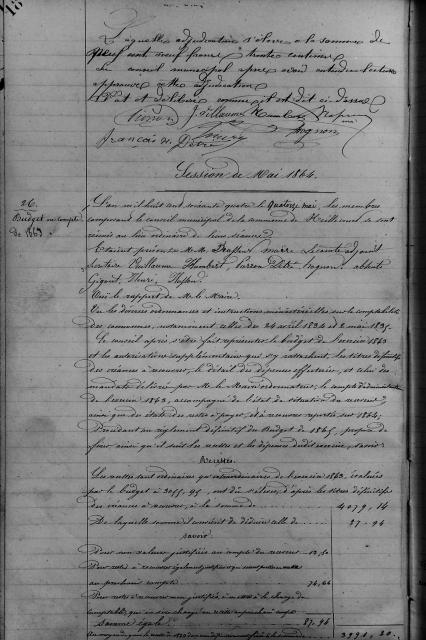 Laquelle adjudication s'élève à la somme de
neuf cent neuf francs trente centimes
Le conseil municipal après avoir entendu lecture
approuve cette adjudication
Fait et délibéré comme il est dit ci-dessus
Session de Mai 1864.
26.
Budget
de 1863
L'an mil huit cent soixante quatre le quatorze mai, les membres
composant le conseil municipal de la commune de se sont
réunis au lieu ordinaire de leurs séances
Étaient présents M.M. maire adjoint
Secrétaire Vuillaume Humbert, absents
Gigout, Henri,
Ouï le rapport de M. le Maire
Vu les diverses ordonnances et instructions ministérielles sur la comptabilité
des communes, notamment celles des 24 avril 1834 et 2 mai 1835.
Le conseil après s'être fait représenter le budget de l'exercice 1863
et les autorisations supplémentaires qui s'y rattachent, les titres définitifs
des créances à recouvrer, le détail des dépenses effectuées, et celui des
mandats délivrés par M. le Maire ordonnateur; le compte d'administration
de l'exercice 1863, accompagné de l'état de situation du receveur,
ainsi que des états des restes à payer, et à recouvrer reportés sur 1864;
Procédant au règlement définitif du Budget de 1863, propose de
fixer ainsi qu'il suit les recettes et les dépenses dudit exercice, savoir:
Recettes.
Les recettes tant ordinaires qu'extraordinaires de l'exercice 1863, évaluées
par le budget à 3055,95, ont dû s'élever, d'après les titres définitifs
des créances à recouvrer, à la somme de 4079,14
De laquelle somme il convient de déduire celle de 87.94
savoir:
Pour non valeurs justifiées au compte du receveur 13,50
Pour restes à recouvrer également justifiés qui seront portés en recette
au prochain compte 74,44
Pour restes à recouvrer non justifiés, à mettre à la charge du
comptable, qui en sera chargé au prochain compte
Somme égale: 87.94
3991,20.